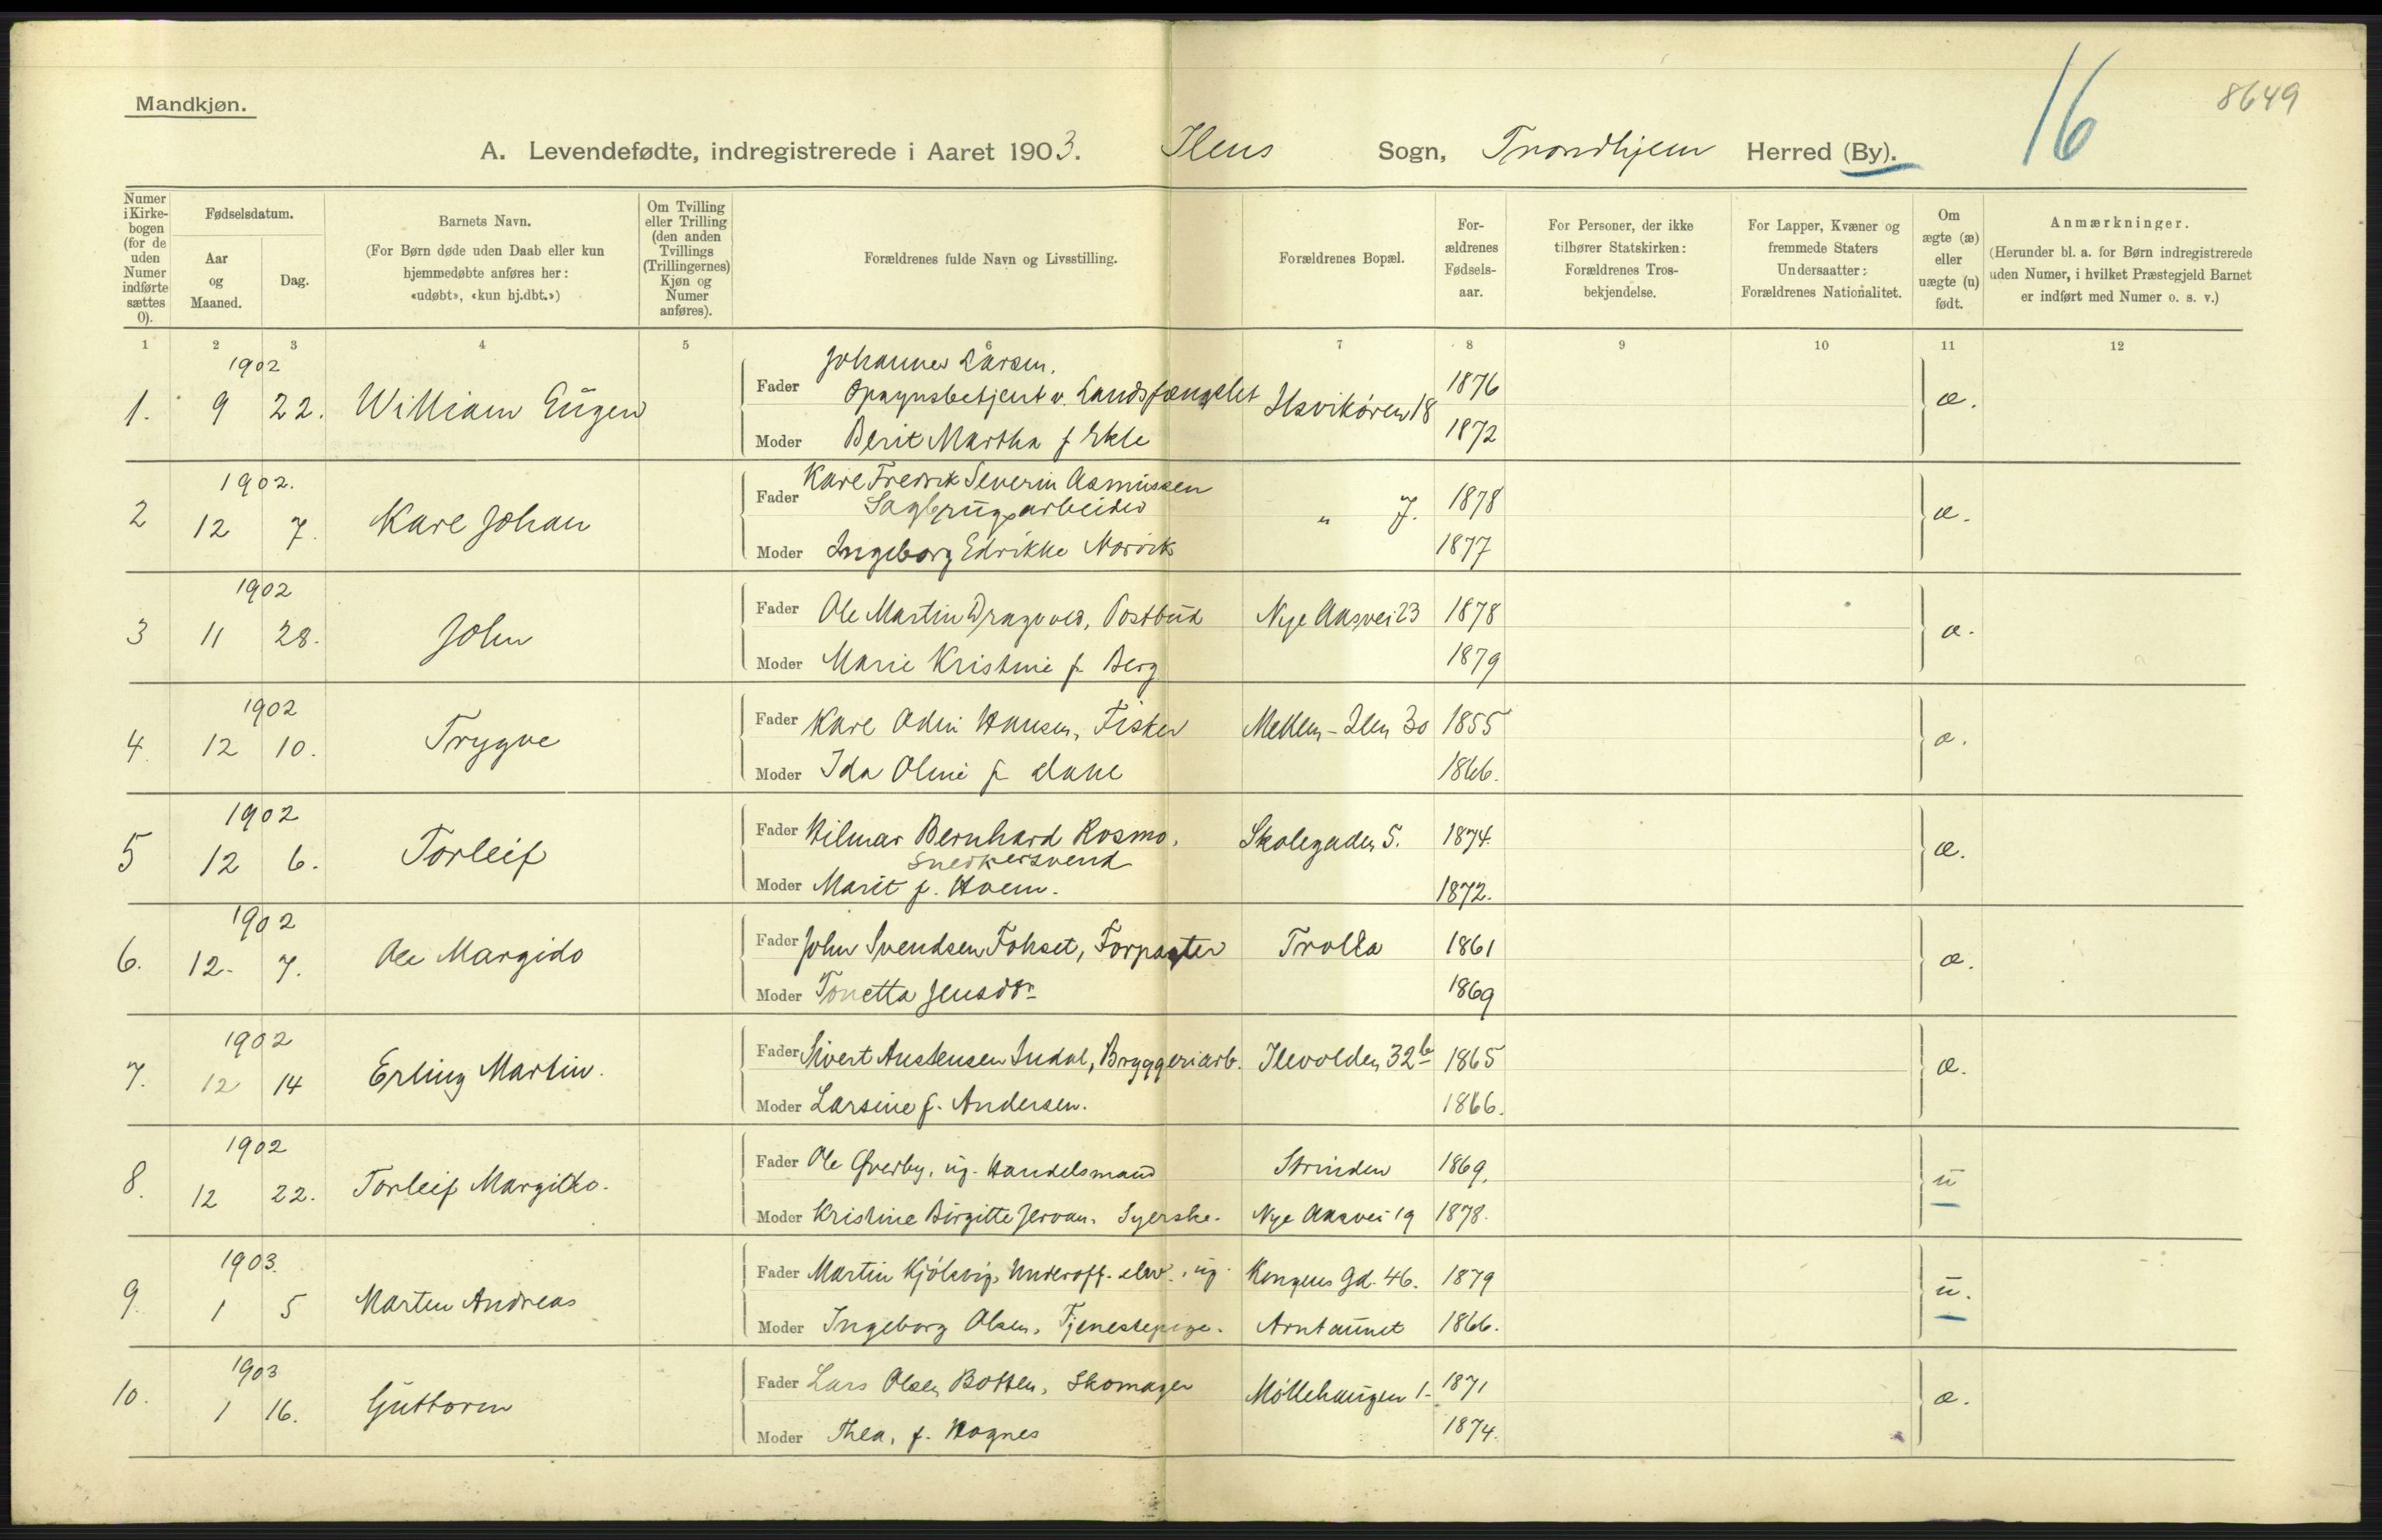 Mandkjøn.
16
8649
A. Levendefødte, indregistrerede i Aaret 1903. Ilens Sogn, Trondhjem Herred (By).
Numer i Kirkebogen (for de uden Numer indførte sættes 0).
Fødselsdatum.
Aar og Maaned.
Dag.
Barnets Navn.
(For Børn døde uden Daab eller kun hjemmedøbte anføres her: «udøbt», «kun hj.dbt.»)
Om Tvilling eller Trilling (den anden Tvillings (Trillingernes) Kjøn og Numer anføres).
Forældrenes fulde Navn og Livsstilling.
Forældrenes Bopæl.
Forældrenes Fødselsaar.
For Personer, der ikke tilhører Statskirken: Forældrenes Trosbekjendelse.
For Lapper, Kvæner og fremmede Staters Undersaatter: Forældrenes Nationalitet.
Om ægte (æ) eller uægte (u) født.
Anmærkninger.
(Herunder bl. a. for Børn indregistrerede uden Numer, i hvilket Præstegjeld Barnet er indført med Numer o. s. v.)
1 2 3 4 5 6 7 8 9 10 11 12
1902
1. 9 22. William Eugen
Fader Johannes Larsen.
Opsynsbetjent v. Landsfængslet Ilsvikøren 18 1876 æ.
Moder Berit Martha f. Ekle 1872
1902.
2 12 7. Karl Johan
Fader Karl Fredrik Severin Asmussen
Sagbrugsarbeider " 7. 1878 æ.
Moder Ingeborg Edrikke 1877
1902
3 11 28. John
Fader Ole Martin Dragvold, Postbud Nye Aasvei 23 1878 æ.
Moder Marie Kristine f. Berg 1879
1902
4. 12 10. Trygve
Fader Karl Odin Hansen, Fisker Mellem-Ilen 30 1855 æ.
Moder Ida Oline f. 1866.
1902
5 12 6. Torleif
Fader Hilmar Bernhard Rosmo, Skolegaden 5. 1874. æ.
Snedkersvend
Moder Marit f. Hoem. 1872.
1902
6. 12. 7. Ole Margido
Fader John Svendsen Fokset, Forpagter Trolla 1861 æ.
Moder Tonetta Jensdr. 1869
1902
7. 12 14 Erling Martin.
Fader Sivert Austensen Indal, Bryggeriarb. Ilevolden 32b 1865 æ.
Moder Larsine f. Andersen. 1866.
1902
8. 12 22. Torleif Margido.
Fader Ole Qverby, ug. Handelsmand Strinden 1869. u
Moder Kristine Birgitte Jervan, Syerske. Nye Aasvei 19 1878.
1903.
9. 1 5 Marten Andreas
Fader Martin Kjølsvig, Underoff. elev, ug. Kongens Gd. 46. 1879 u.
Moder Ingeborg Olsen, Tjenestepige. Arntaunet 1866.
1903
10. 1 16. Guttorm
Fader Lars Olsen Botten, Skomager Møllehaugen 1. 1871 æ.
Moder Thea, f. Hognes 1874.